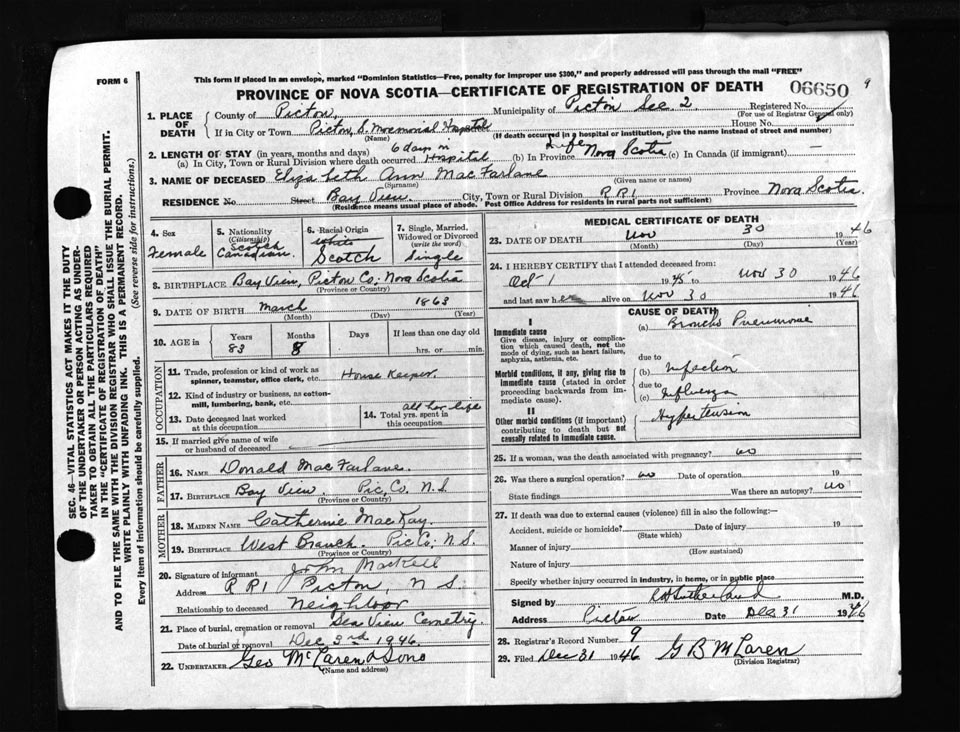 FORM 6
This form if placed in an envelope, marked "Dominion Statistics—Free, penalty for improper use $300," and properly addressed will pass through the mail "FREE"
PROVINCE OF NOVA SCOTIA—CERTIFICATE OF REGISTRATION OF DEATH 06650 9
SEC. 46—VITAL STATISTICS ACT MAKES IT THE DUTY
OF THE UNDERTAKER OR PERSON ACTING AS UNDER-
TAKER TO OBTAIN ALL THE PARTICULARS REQUIRED
IN THE "CERTIFICATE OF REGISTRATION OF DEATH"
AND TO FILE THE SAME WITH THE DIVISION REGISTRAR WHO SHALL ISSUE THE BURIAL PERMIT.
WRITE PLAINLY WITH UNFADING INK. THIS IS A PERMANENT RECORD.
Every item of information should be carefully supplied. (See reverse side for instructions.)
1. PLACE OF DEATH
County of Pictou, Municipality of Pictou Sec 2 Registered No.
(For use of Registrar General only)
If in City or Town Pictou, S. Memorial Hospital House No.
(Name) (If death occurred in a hospital or institution, give the name instead of street and number)
2. LENGTH OF STAY (in years, months and days) 6 days in Life
(a) In City, Town or Rural Division where death occurred Hospital (b) In Province Nova Scotia (c) In Canada (if immigrant) —
3. NAME OF DECEASED Elizabeth Ann MacFarlane
(Surname) (Given name or names)
RESIDENCE No. Street Bay View. City, Town or Rural Division R.R.1 Province Nova Scotia
(Residence means usual place of abode. Post Office Address for residents in rural parts not sufficient)
4. Sex
Female
5. Nationality
(Citizenship)
Scotch
Canadian.
6. Racial Origin
White
Scotch
7. Single, Married, Widowed or Divorced
(write the word)
Single
8. BIRTHPLACE Bay View, Pictou Co. Nova Scotia
(Province or Country)
9. DATE OF BIRTH March 1863
(Month) (Day) (Year)
10. AGE in Years Months Days If less than one day old
83 8 hrs. or min.
OCCUPATION
11. Trade, profession or kind of work as
spinner, teamster, office clerk, etc. House Keeper.
12. Kind of industry or business, as cotton-
mill, lumbering, bank, etc.
13. Date deceased last worked
at this occupation
14. Total yrs. spent in
this occupation all her life
15. If married give name of wife
or husband of deceased
FATHER
16. NAME Donald MacFarlane.
17. BIRTHPLACE Bay View. Pic, Co. N.S.
(Province or Country)
MOTHER
18. MAIDEN NAME Catherine MacKay.
19. BIRTHPLACE West Branch. Pic Co. N.S.
(Province or Country)
20. Signature of informant John
Address R R 1 Pictou, N S.
Relationship to deceased Neighbor
21. Place of burial, cremation or removal Sea View Cemetry.
Date of burial or removal Dec 3rd 1946.
22. UNDERTAKER Geo McLaren & Sons
(Name and address)
MEDICAL CERTIFICATE OF DEATH
23. DATE OF DEATH Nov 30 1946
(Month) (Day) (Year)
24. I HEREBY CERTIFY that I attended deceased from:
Oct 1 1945 to Nov 30 1946
and last saw her alive on Nov 30 1946
CAUSE OF DEATH
I
Immediate cause
Give disease, injury or complica-
tion which caused death, not the
mode of dying, such as heart failure,
asphyxia, asthenia, etc.
(a) Broncho Pneumonia
due to
Morbid conditions, if any, giving rise to
immediate cause (stated in order
proceeding backwards from im-
mediate cause).
(b) Infection
due to
(c) Influenza
II
Other morbid conditions (if important)
contributing to death but not
causally related to immediate cause.
Hypertension
25. If a woman, was the death associated with pregnancy? No
26. Was there a surgical operation? No Date of operation 19
State findings Was there an autopsy? No
27. If death was due to external causes (violence) fill in also the following:—
Accident, suicide or homicide? Date of injury 19
(State which)
Manner of injury
(How sustained)
Nature of injury
Specify whether injury occurred in industry, in home, or in public place
Signed by Sutherland M.D.
Address Pictou Date Dec 31 1946
28. Registrar's Record Number 9
29. Filed Dec 31 1946 G B McLaren
(Division Registrar)